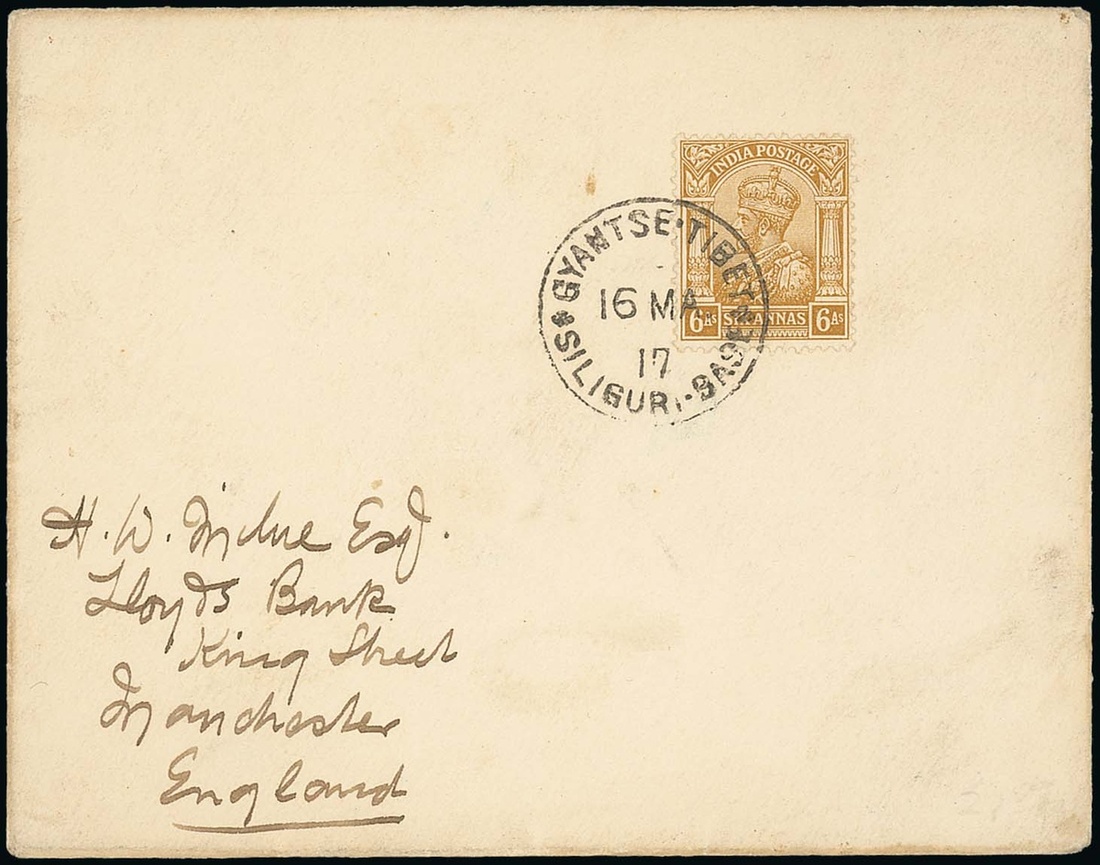 INDIA POSTAGE
6As SIX ANNAS 6As
GYANTSE·TIBET
16 MA.
17
SILIGURI-BASE
H. W. Milne Esq.
Lloyds Bank
King Street
Manchester
England